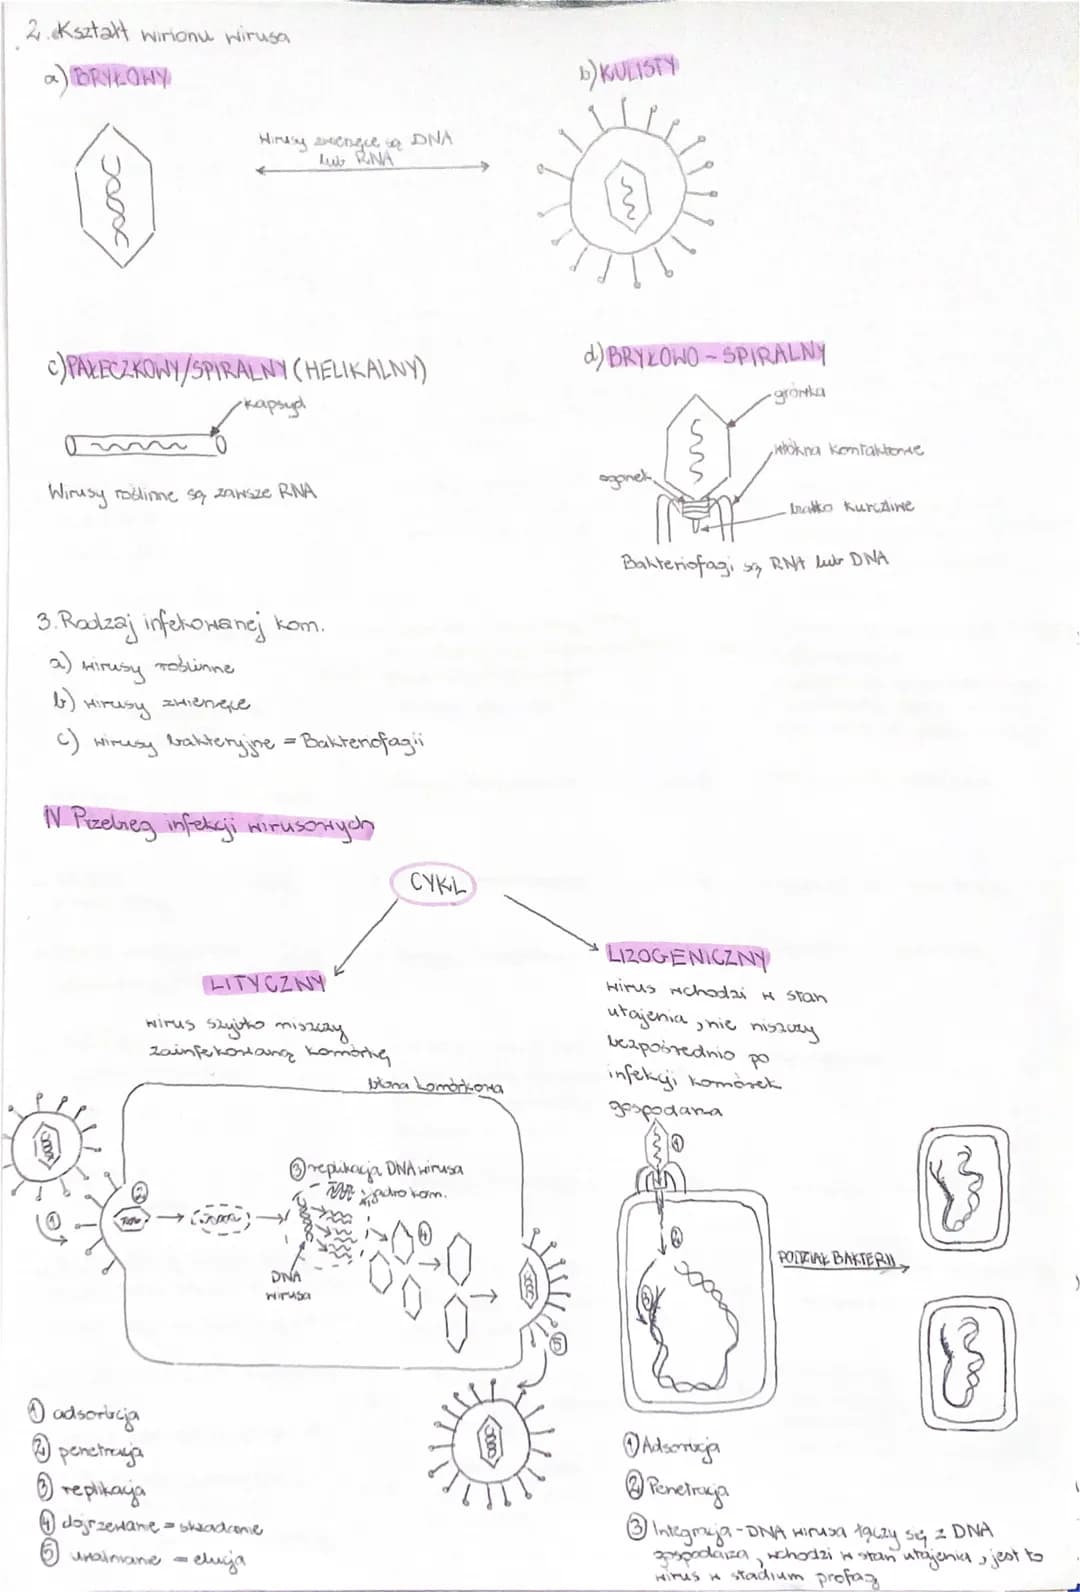 2. Kształt wirionu wirusa
a) BRYŁOWY
b) KULISTY
Wirusy zwierzęce są DNA
lub RNA
c) PAŁECZKOWY/SPIRALNY (HELIKALNY)
kapsyd
Wirusy roślinne są zawsze RNA
d) BRYŁOWO - SPIRALNY
główka
włókna kontaktowe
ogonek
białko kurczliwe
Bakteriofagi są RNA lub DNA
3. Rodzaj infekowanej kom.
a) wirusy roślinne
b) wirusy zwierzęce
c) wirusy bakteryjne = Bakteriofagii
IV Przebieg infekcji wirusowych
CYKL
LITYCZNY
wirus szybko niszczy
zainfekowaną komórkę
błona komórkowa
3 replikacja DNA wirusa
jądro kom.
2
1
4
DNA
wirusa
5
1 adsorbcja
2 penetracja
3 replikacja
4 dojrzewanie = składanie
5 uwalnianie = elucja
LIZOGENICZNY
wirus wchodzi w stan
utajenia, nie niszczy
bezpośrednio po
infekcji komórek
gospodarza
1
2
3
PODZIAŁ BAKTERII
1 Adsorbcja
2 Penetracja
3 Integracja - DNA wirusa łączy się z DNA
gospodarza, wchodzi w stan utajenia, jest to
wirus w stadium profag